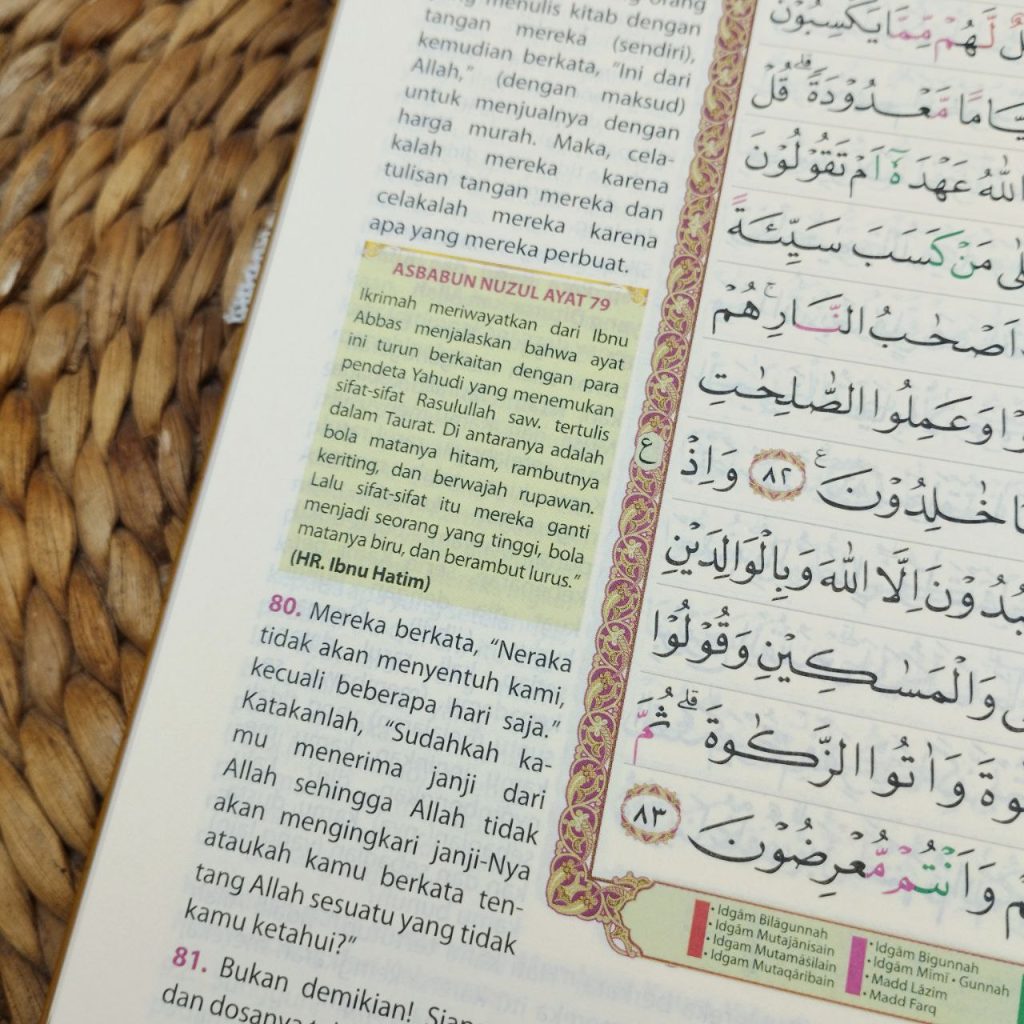 menulis kitab dengan
tangan mereka (sendiri),
kemudian berkata, “Ini dari
Allah,” (dengan maksud)
untuk menjualnya dengan
harga murah. Maka, cela-
kalah mereka karena
tulisan tangan mereka dan
celakalah mereka karena
apa yang mereka perbuat.
ASBABUN NUZUL AYAT 79
Ikrimah meriwayatkan dari Ibnu
Abbas menjalaskan bahwa ayat
ini turun berkaitan dengan para
pendeta Yahudi yang menemukan
sifat-sifat Rasulullah saw. tertulis
dalam Taurat. Di antaranya adalah
bola matanya hitam, rambutnya
keriting, dan berwajah rupawan.
Lalu sifat-sifat itu mereka ganti
menjadi seorang yang tinggi, bola
matanya biru, dan berambut lurus.”
(HR. Ibnu Hatim)
80. Mereka berkata, “Neraka
tidak akan menyentuh kami,
kecuali beberapa hari saja.”
Katakanlah, “Sudahkah ka-
mu menerima janji dari
Allah sehingga Allah tidak
akan mengingkari janji-Nya
ataukah kamu berkata ten-
tang Allah sesuatu yang tidak
kamu ketahui?”
81. Bukan demikian!
dan
لَّهُمْ مِّمَّا يَكْسِبُوْنَ
مَّعْدُوْدَةً ۗ قُلْ
اللّٰهُ عَهْدَهٗٓ اَمْ تَقُوْلُوْنَ
مَنْ كَسَبَ سَيِّئَةً
اَصْحٰبُ النَّارِ ۚ هُمْ
وَعَمِلُوا الصّٰلِحٰتِ
ع
خٰلِدُوْنَ ࣖ ٨٢ وَاِذْ
اِلَّا اللّٰهَ وَبِالْوَالِدَيْنِ
وَالْمَسٰكِيْنِ وَقُوْلُوْا
وَاٰتُوا الزَّكٰوةَ ۗ ثُمَّ
وَاَنْتُمْ مُّعْرِضُوْنَ ٨٣
• Idgām Bilāgunnah
• Idgām Mutajānisain
• Idgam Mutamāṡilain
• Idgam Mutaqāribain
• Idgām Bigunnah
• Idgām Mīmī • Gunnah
• Madd Lāzim
• Madd Farq